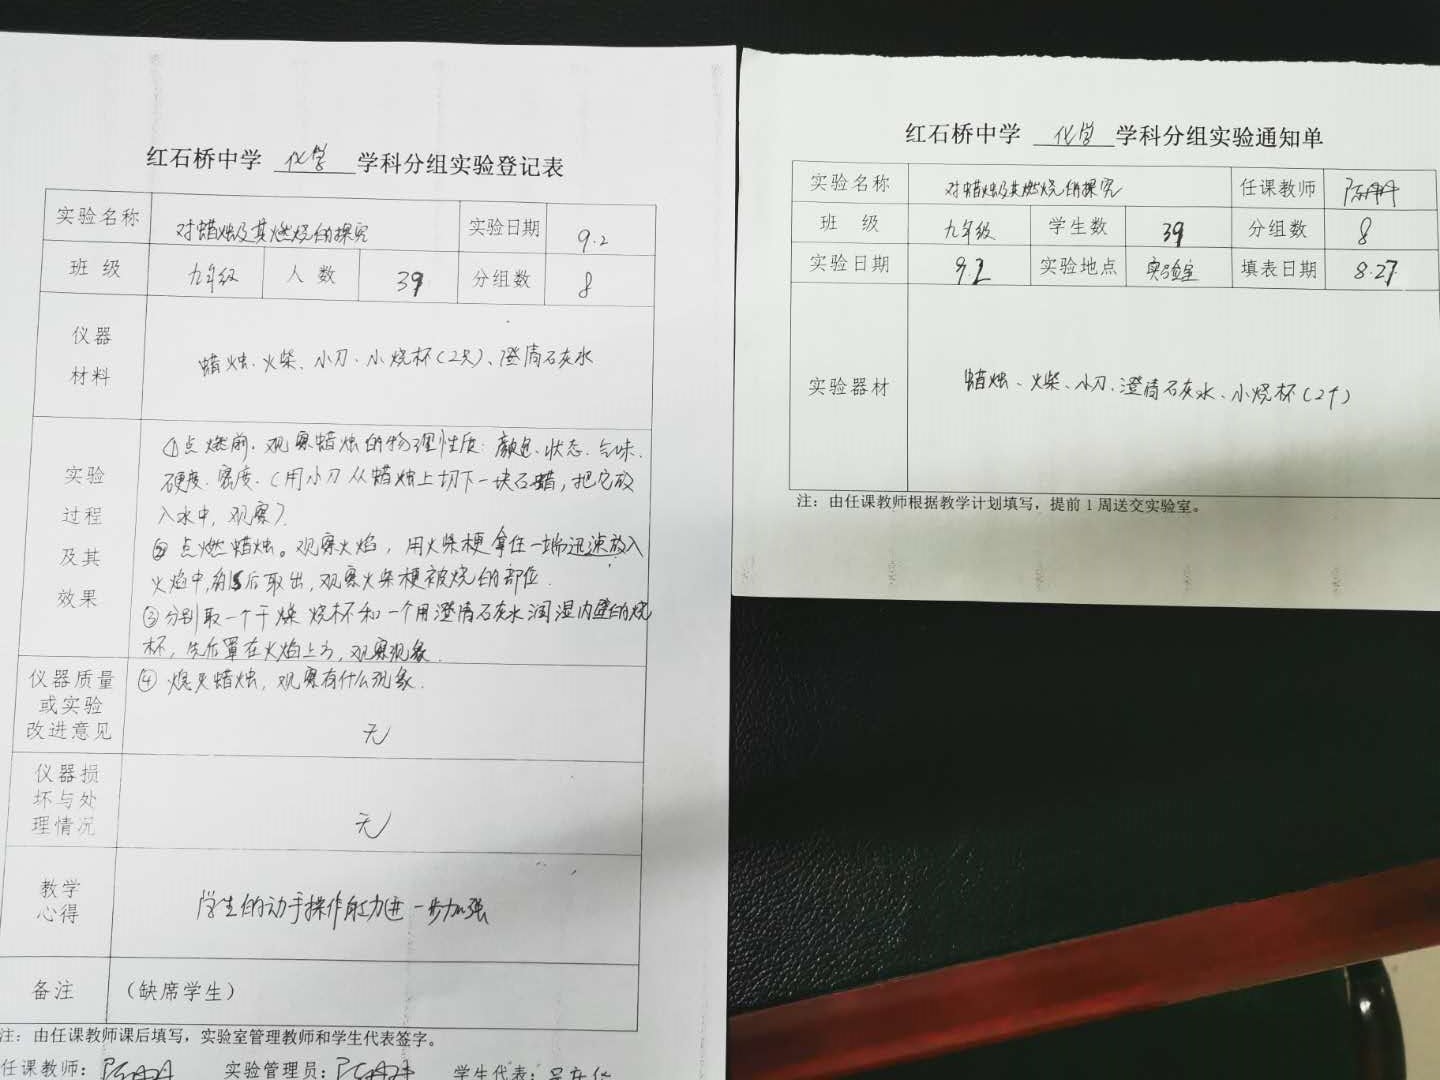 红石桥中学 化学 学科分组实验登记表
实验名称 对蜡烛及其燃烧的探究 实验日期 9.2
班级 九年级 人数 39 分组数 8
仪器
材料
蜡烛、火柴、小刀、小烧杯(2只)、澄清石灰水
实验
过程
及其
效果
①点燃前.观察蜡烛的物理性质:颜色.状态.气味.
硬度.密度.(用小刀从蜡烛上切下一块石蜡,把它放
入水中,观察).
②点燃蜡烛。观察火焰,用火柴梗拿住一端迅速放入
火焰中,约1s后取出,观察火柴梗被烧的部位.
③分别取一个干燥烧杯和一个用澄清石灰水润湿内壁的烧
杯,先后罩在火焰上方,观察现象.
④熄灭蜡烛,观察有什么现象.
仪器质量
或实验
改进意见
无
仪器损
坏与处
理情况
无
教学
心得
学生的动手操作能力进一步加强
备注 (缺席学生)
注:由任课教师课后填写,实验室管理教师和学生代表签字。
任课教师: 实验管理员: 学生代表:
红石桥中学 化学 学科分组实验通知单
实验名称 对蜡烛及其燃烧的探究 任课教师
班级 九年级 学生数 39 分组数 8
实验日期 9.2 实验地点 实验室 填表日期 8.27
实验器材 蜡烛、火柴、小刀、澄清石灰水、小烧杯(2个)
注:由任课教师根据教学计划填写,提前1周送交实验室。